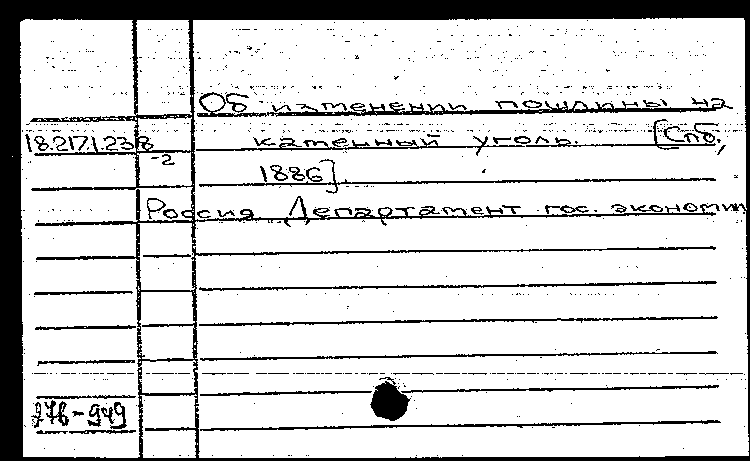 Об изменении пошлины на
18.217.1.238
-2
каменный уголь. [Спб.,
1886].
Россия. Департамент гос. экономии
276-949